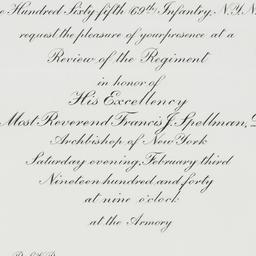 Hundred Sixty fifth (69th) Infantry, N.Y.N.
request the pleasure of your presence at a
Review of the Regiment
in honor of
His Excellency
Most Reverend Francis J. Spellman,
Archbishop of New York
Saturday evening, February third
Nineteen hundred and forty
at nine o'clock
at the Armory